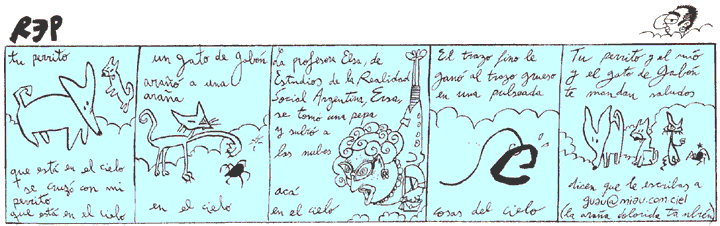 REP
tu perrito
que está en el cielo
se cruzó con mi
perrito
que está en el cielo
un gato de Gabón
arañó a una
araña
en el cielo
La profesora Elsa, de
Estudios de la Realidad
Social Argentina, Ersa,
se tomó una pepa
y subió a
las nubes
acá
en el cielo
El trazo fino le
ganó al trazo grueso
en una pulseada
cosas del cielo
Tu perrito y el mío
y el gato de Gabón
te mandan saludos
dicen que le escribas a
guau@miau.com.ciel
(la araña dolorida tambien)